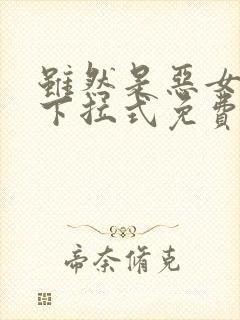 雖然是惡女
下拉式免費
帝奈脩克